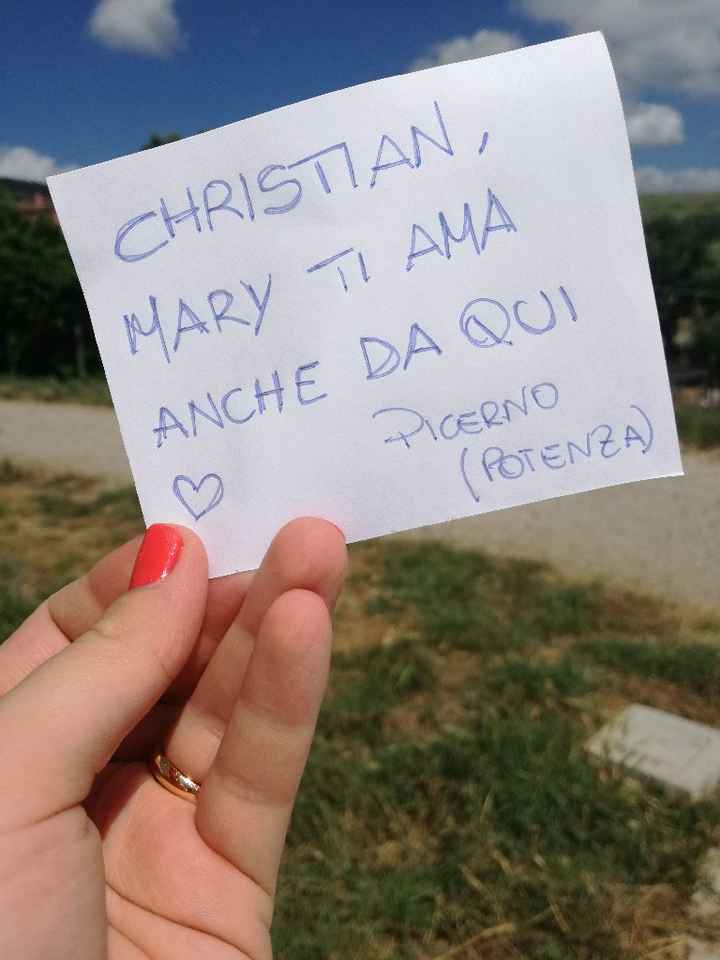 CHRISTIAN,
MARY TI AMA
ANCHE DA QUI
♡ PICERNO
(POTENZA)